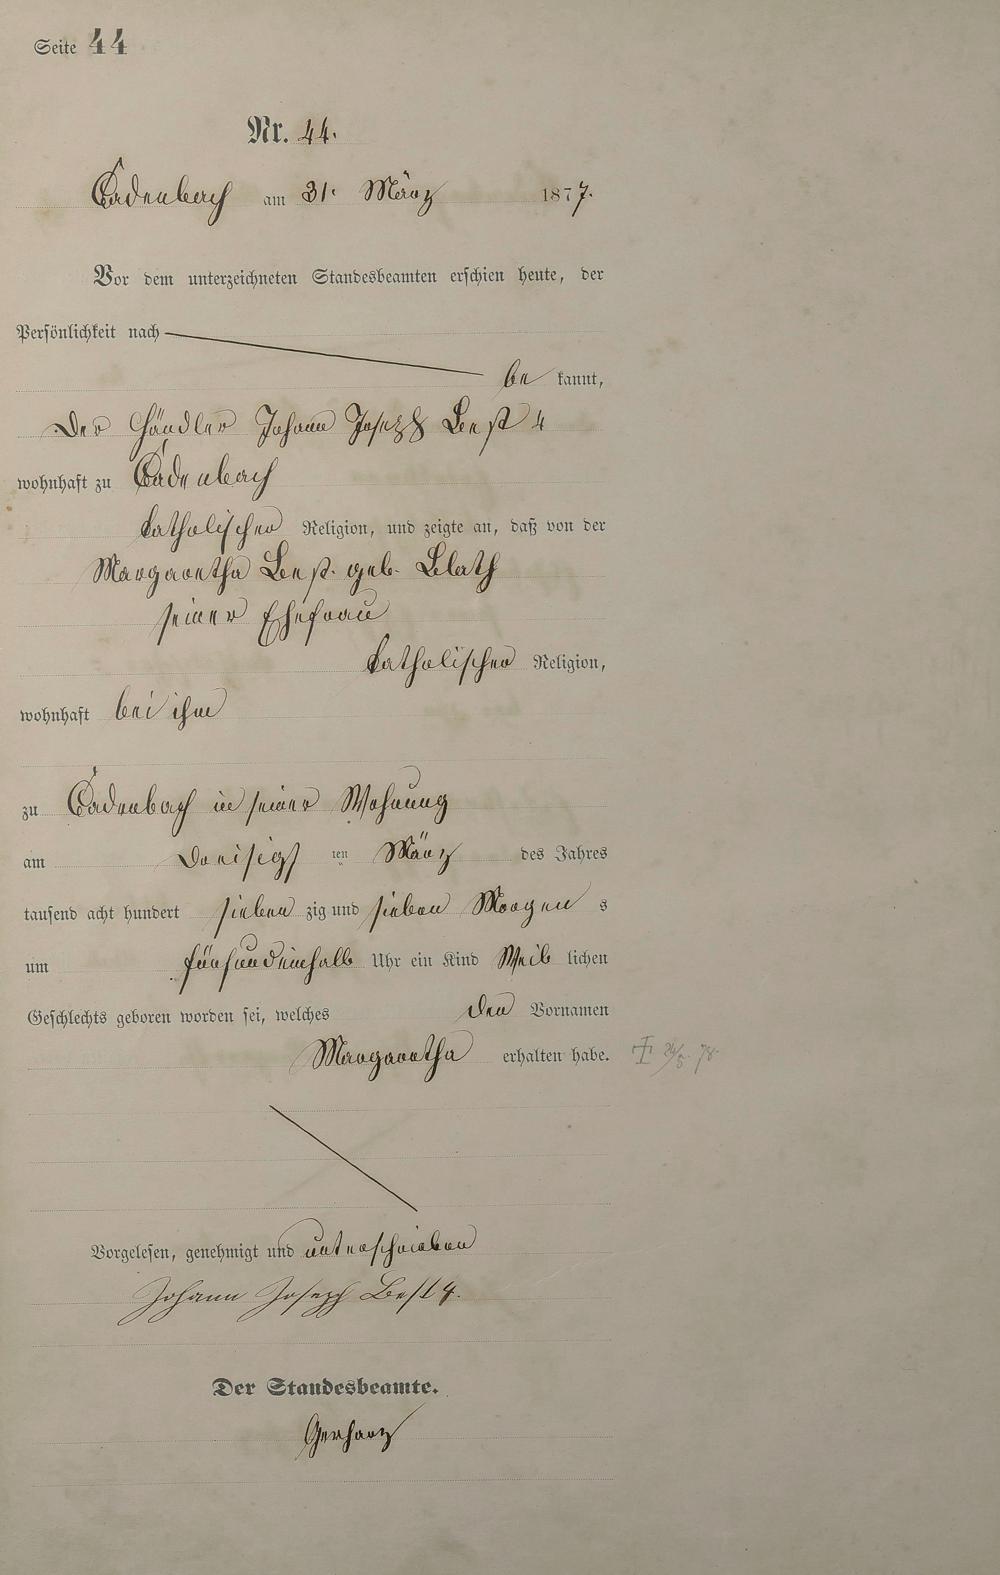 Seite 44
Nr. 44.
Cadenbach am 31. März 1877.
Vor dem unterzeichneten Standesbeamten erschien heute, der
Persönlichkeit nach
be kannt,
Der Händler Johann Joseph Best 4
wohnhaft zu Cadenbach
katholischer Religion, und zeigte an, daß von der
Margaretha Best geb. Blath
seiner Ehefrau
katholischer Religion,
wohnhaft bei ihm
zu Cadenbach in seiner Wohnung
am Dreisigs ten März des Jahres
tausend acht hundert sieben zig und sieben Morgen s
um fünfundeinhalb Uhr ein Kind Weib lichen
Geschlechts geboren worden sei, welches den Vornamen
Margaretha erhalten habe. 78.
Vorgelesen, genehmigt und unterschrieben
Johann Joseph Best 4.
Der Standesbeamte.
Gerharz